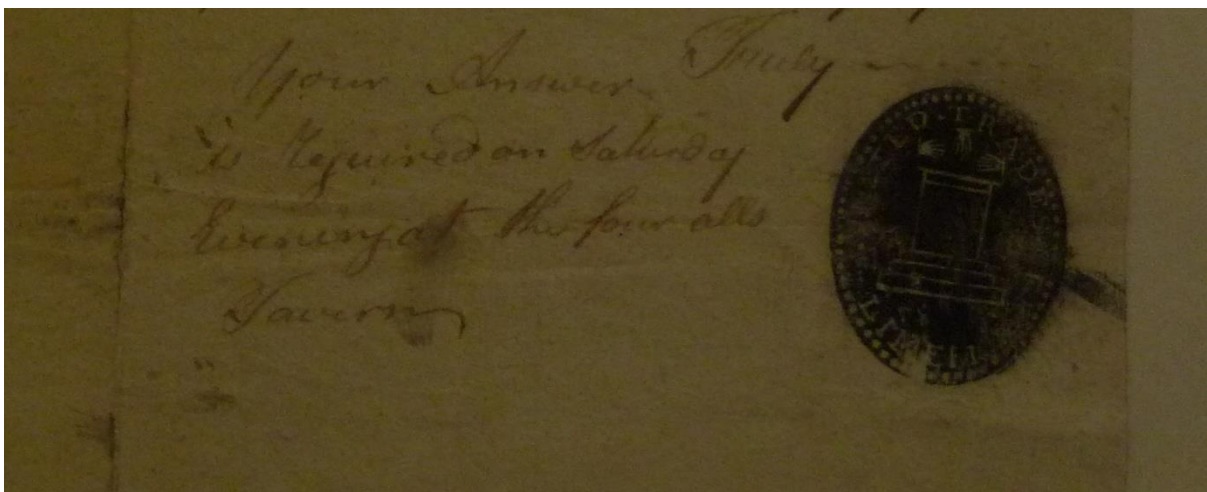 Truly
Your Answer
is Required on Saturday
Evening at the four alls
Tavern
LD · TRADE
LIMEH